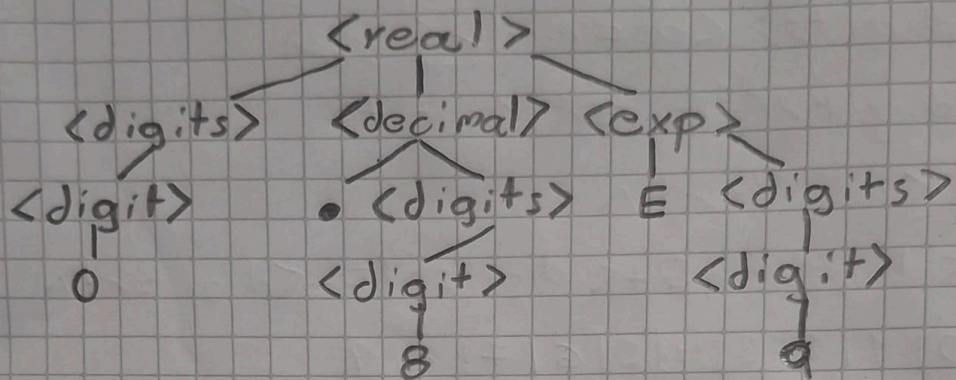 <real>
<digits> <decimal> <exp>
<digit> . <digits> E <digits>
0 <digit> <digit>
8 9